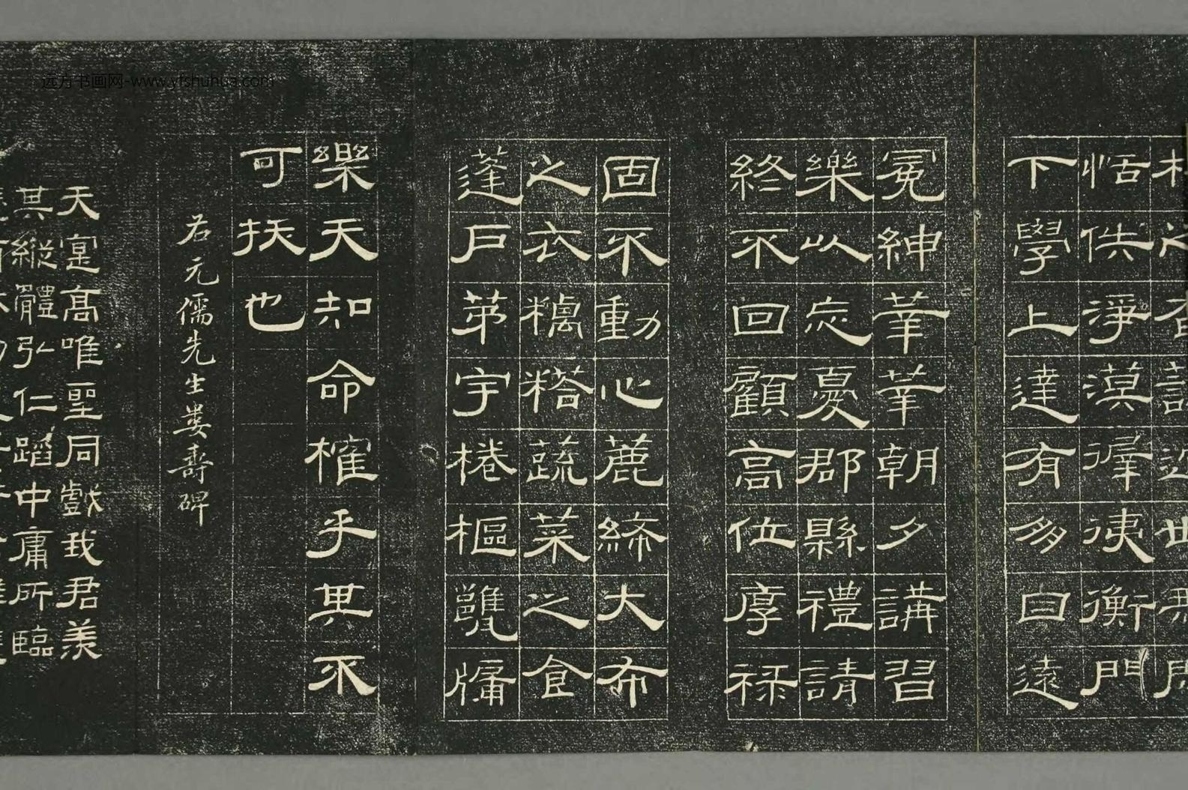 远方书画网-www.yfshuhua.com
恬佚淨漠徲衡門
下學上達有朋自遠
冕紳莘莘朝夕講習
樂以忘憂郡縣禮請
終不回顧高位厚祿
固不動心麤絺大布
之衣糲蔬菜之食
蓬戶茅宇棬樞甕牖
樂天知命榷乎其不
可拔也
右元儒先生婁壽碑
天寔高唯聖同戲我君羨
其縱體弘仁蹈中庸所臨